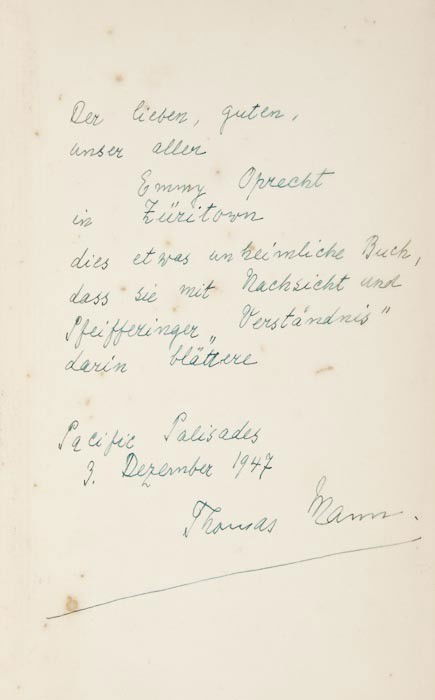 Der lieben, guten,
unser aller
Emmy Oprecht
in Züritown
dies etwas unheimliche Buch,
dass sie mit Nachsicht und
Pfeifferinger „Verständnis“
darin blättere
Pacific Palisades
3. Dezember 1947
Thomas Mann.